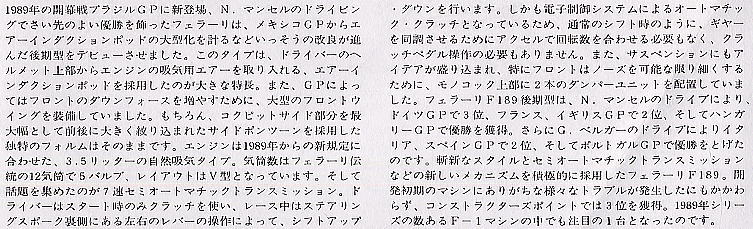 1989年の開幕戦ブラジルGPに新登場、N．マンセルのドライビン
グでさい先のよい優勝を飾ったフェラーリは、メキシコGPからエ
アーインダクションポッドの大型化を計るなどいっそうの改良が進
んだ後期型をデビューさせました。このタイプは、ドライバーのヘ
ルメット上部からエンジンの吸気用エアーを取り入れる、エアーイ
ンダクションポッドを採用したのが大きな特長。また、GPによっ
てはフロントのダウンフォースを増やすために、大型のフロントウ
イングを装備していました。もちろん、コクピットサイド部分を最
大幅として前後に大きく絞り込まれたサイドポンツーンを採用した
独特のフォルムはそのままです。エンジンは1989年からの新規定に
合わせた、3.5リッターの自然吸気タイプ。気筒数はフェラーリ伝
統の12気筒で5バルブ、レイアウトはV型となっています。そして
話題を集めたのが7速セミオートマチックトランスミッション。ド
ライバーはスタート時のみクラッチを使い、レース中はステアリン
グスポーク裏側にある左右のレバーの操作によって、シフトアップ
・ダウンを行います。しかも電子制御システムによるオートマチッ
ク・クラッチとなっているため、通常のシフト時のように、ギヤー
を同調させるためにアクセルで回転数を合わせる必要もなく、クラ
ッチペダル操作の必要もありません。また、サスペンションにもア
イデアが盛り込まれ、特にフロントはノーズを可能な限り細くする
ために、モノコック上部に2本のダンパーユニットを配置していま
した。フェラーリF189後期型は、N．マンセルのドライブにより、
ドイツGPで3位、フランス、イギリスGPで2位、そしてハンガ
リーGPで優勝を獲得。さらにG．ベルガーのドライブによりイタ
リア、スペインGPで2位、そしてポルトガルGPで優勝をとげた
のです。斬新なスタイルとセミオートマチックトランスミッション
などの新しいメカニズムを積極的に採用したフェラーリF189。開
発初期のマシンにありがちな様々なトラブルが発生したにもかかわ
らず、コンストラクターズポイントでは3位を獲得。1989年シリー
ズの数あるF－1マシンの中でも注目の1台となったのです。